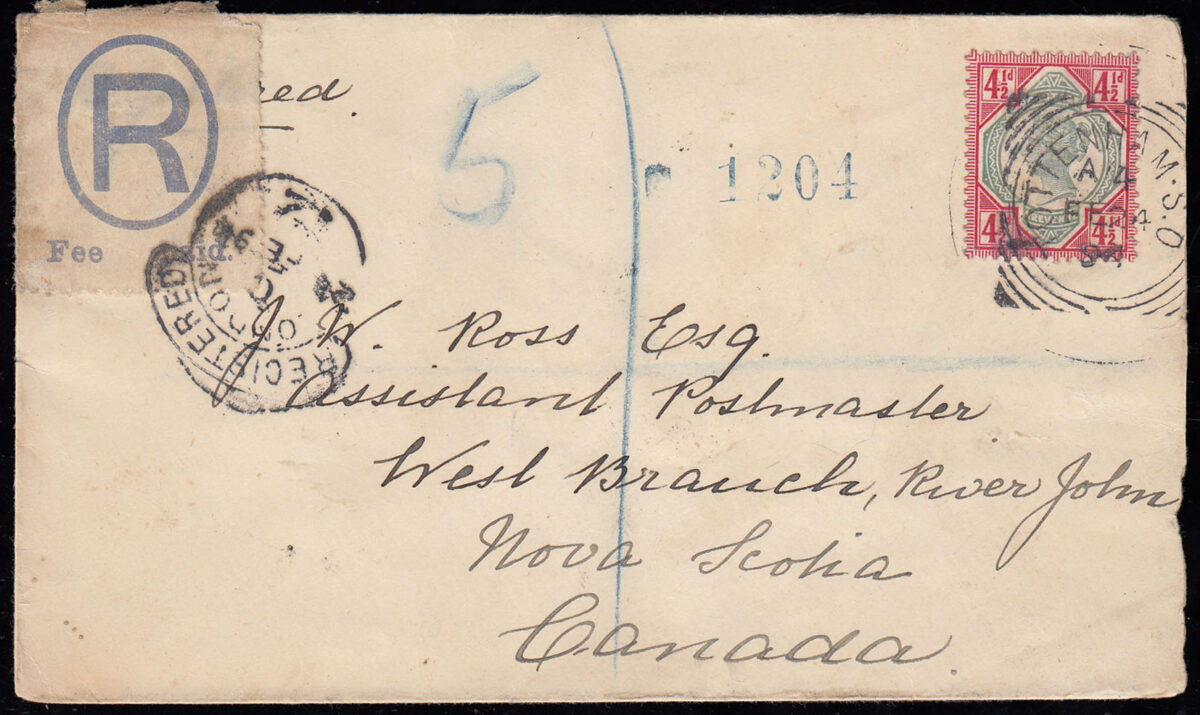 R
Fee
5
1204
4½d 4½d
4½ 4½
TTENHAM.S.O
A 4
FE 24
REGISTERED
J. W. Ross Esq.
Assistant Postmaster
West Branch, River John
Nova Scotia
Canada.